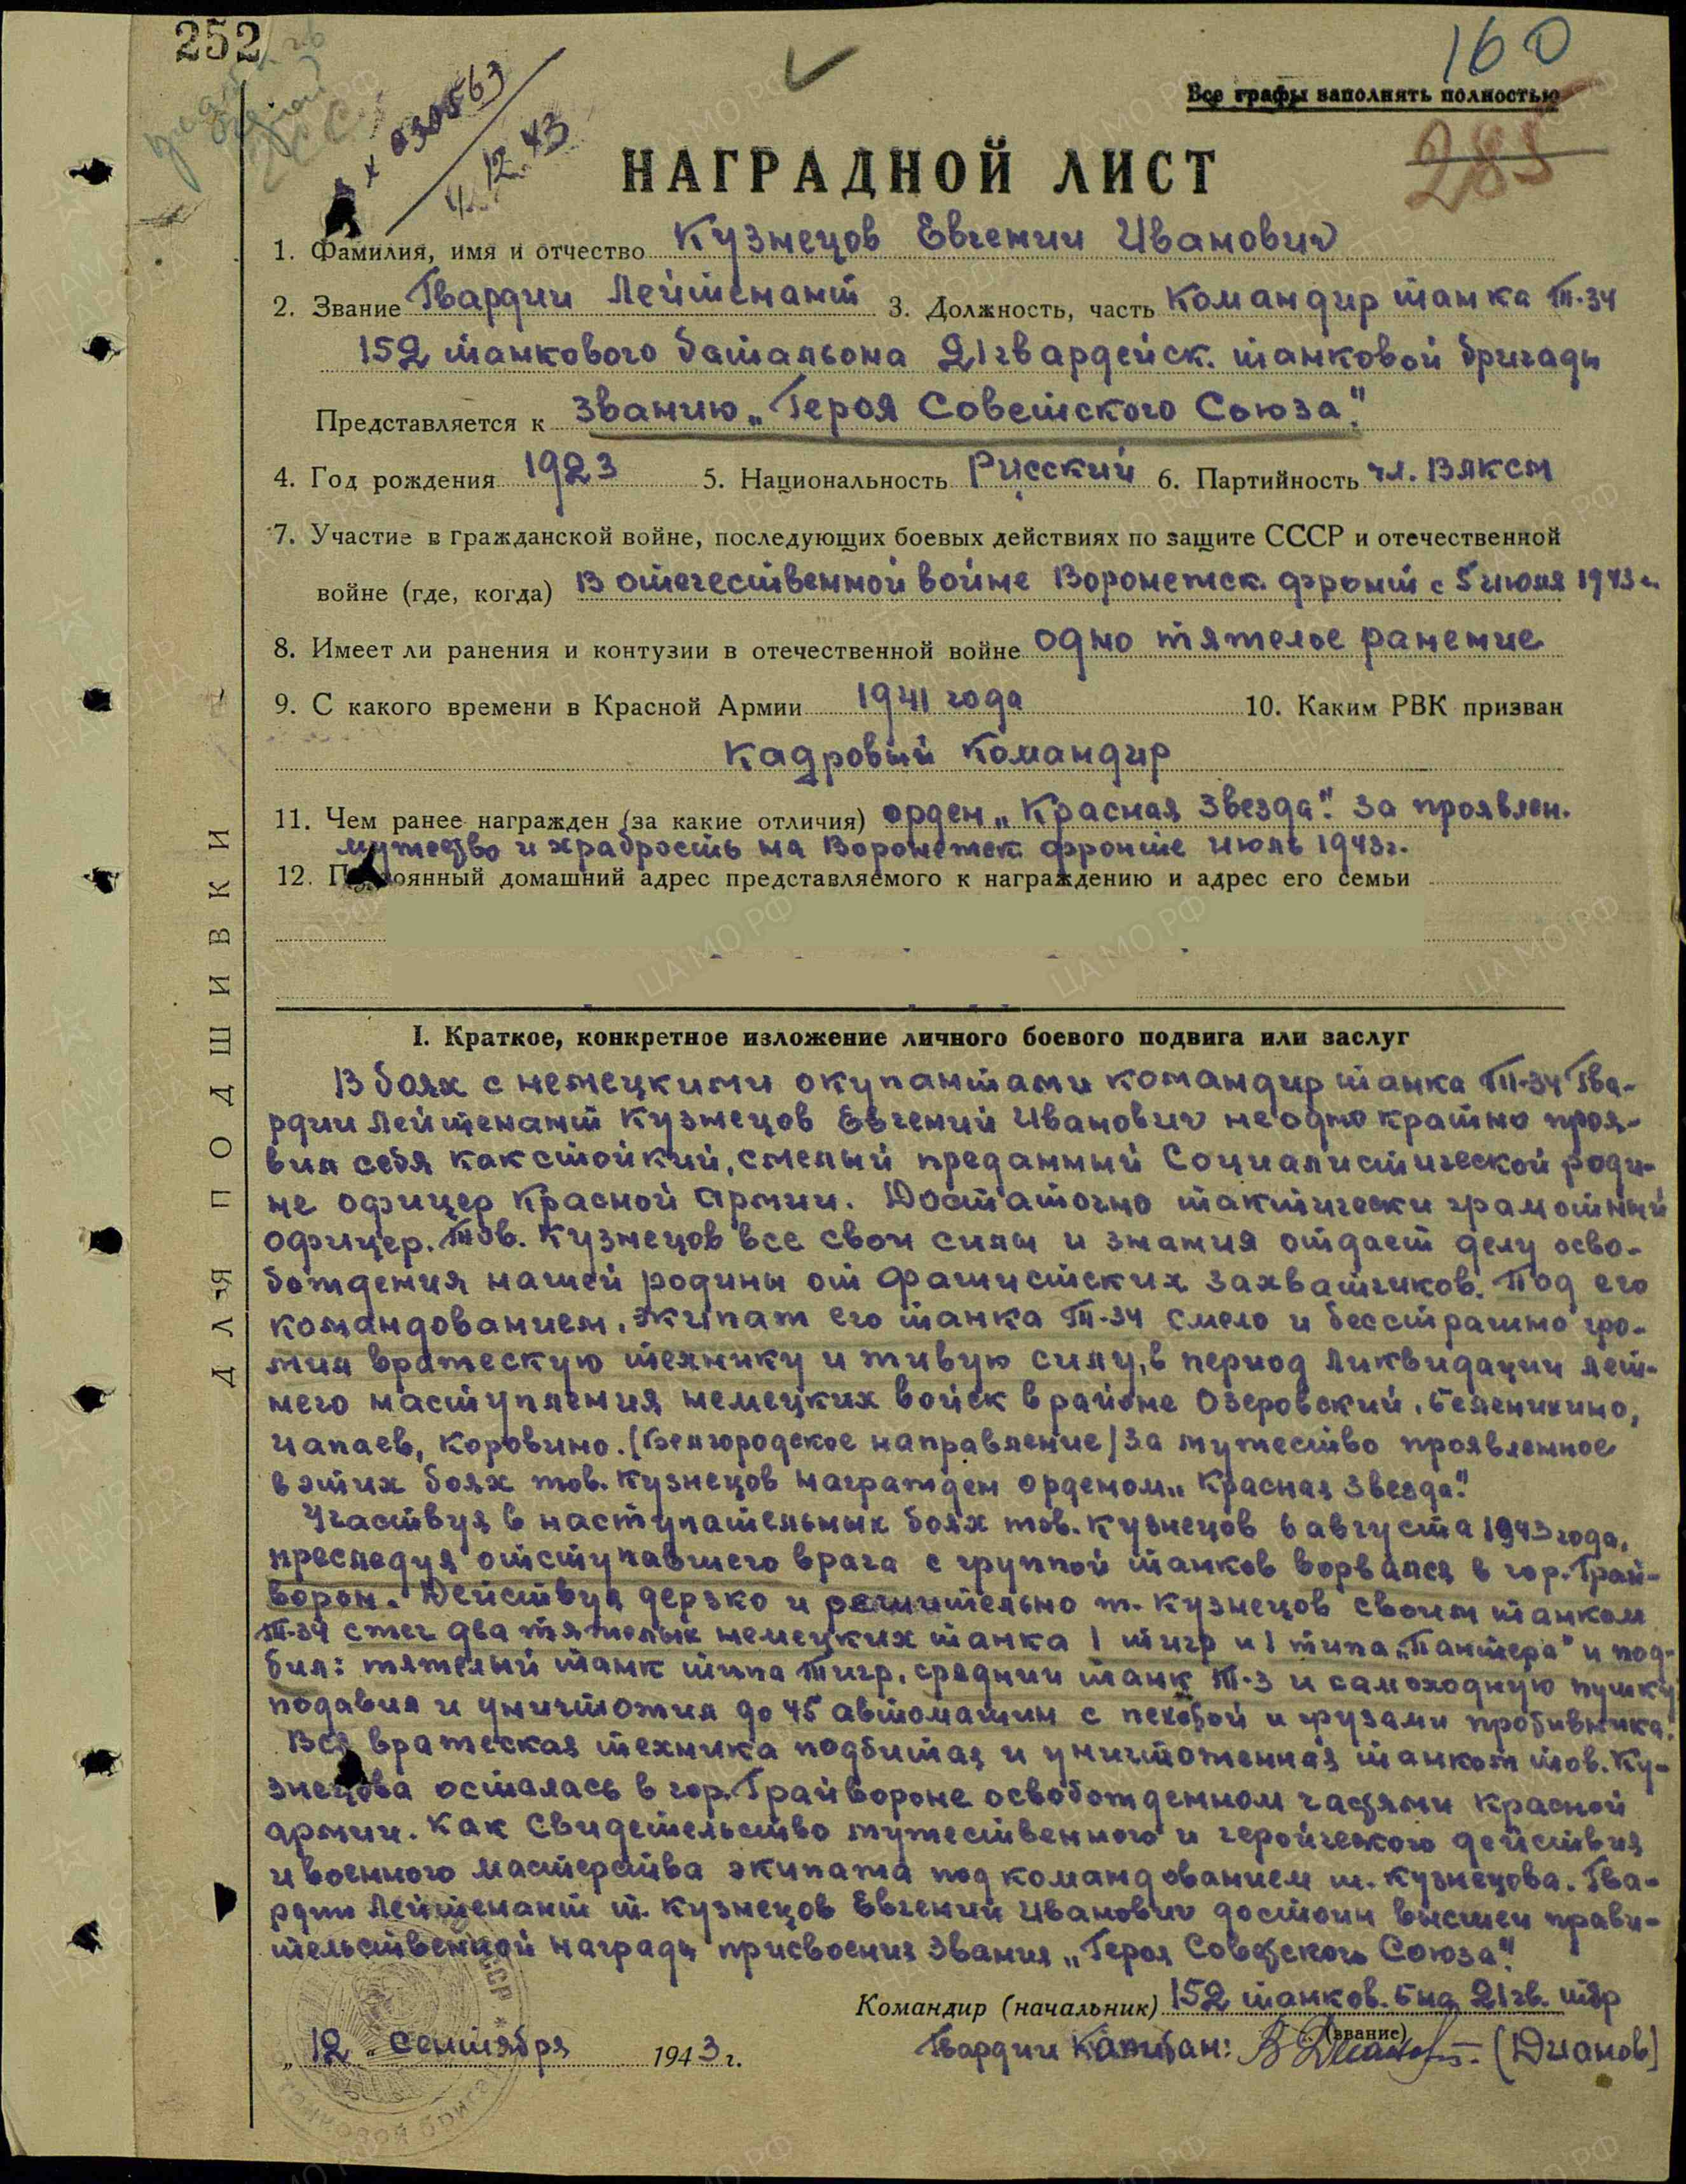 252
160
Все графы заполнять полностью
285
х 0300563
4.12.43
НАГРАДНОЙ ЛИСТ
1. Фамилия, имя и отчество Кузнецов Евгении Иванович
2. Звание Гвардии Лейтенант 3. Должность, часть Командир танка Т-34
152 танкового батальона 21 гвардейск. танковой бригады
Представляется к званию „Героя Советского Союза".
4. Год рождения 1923 5. Национальность Русский 6. Партийность чл. ВЛКСМ
7. Участие в гражданской войне, последующих боевых действиях по защите СССР и отечественной
войне (где, когда) В отечественной войне Воронежск. фронт с 5 июля 1943 г.
8. Имеет ли ранения и контузии в отечественной войне одно тяжелое ранение
9. С какого времени в Красной Армии 1941 года 10. Каким РВК призван
Кадровый Командир
11. Чем ранее награжден (за какие отличия) орден „Красная Звезда". за проявлен.
мужество и храбрость на Воронежск. фронте июль 1943 г.
12. Постоянный домашний адрес представляемого к награждению и адрес его семьи
ДЛЯ ПОДШИВКИ
I. Краткое, конкретное изложение личного боевого подвига или заслуг
В боях с немецкими окупантами командир танка Т-34 Гва-
рдии Лейтенант Кузнецов Евгений Иванович неоднократно проя-
вил себя как стойкий, смелый преданный Социалистической роди-
не офицер Красной Армии. Достаточно тактически грамотный
офицер. Тов. Кузнецов все свои силы и знания отдает делу осво-
бождения нашей родины от фашистских захватчиков. Под его
командованием, экипаж его танка Т-34 смело и бесстрашно гро-
мил вражескую технику и живую силу, в период ликвидации лет-
него наступления немецких войск в районе Озеровский, Беленихино,
Чапаев, Коровино. (Белгородское направление) За мужество проявленное
в этих боях тов. Кузнецов награжден орденом „Красная Звезда".
Участвуя в наступательных боях тов. Кузнецов 6 августа 1943 года,
преследуя отступавшего врага с группой танков ворвался в гор. Грай-
ворон. Действуя дерзко и решительно т. Кузнецов своим танком
Т-34 сжег два тяжелых немецких танка 1 тигр и 1 типа „Пантера" и под-
бил: тяжелый танк типа Тигр, средний танк Т-3 и самоходную пушку
подавил и уничтожил до 45 автомашин с пехотой и грузами противника.
Вся вражеская техника подбитая и уничтоженная танком тов. Ку-
знецова осталась в гор. Грайвороне освобожденном частями Красной
армии. Как Свидетельство мужественного и геройческого действия
и военного мастерства экипажа под командованием т. Кузнецова. Гва-
рдии Лейтенант т. Кузнецов Евгений Иванович достоин высшей прави-
тельственной награды присвоения звания „Героя Советского Союза".
Командир (начальник) 152 танков. б-на 21 гв. тбр
(звание)
„12" Сентября 1943 г.
Гвардии Капитан: (Дианов)